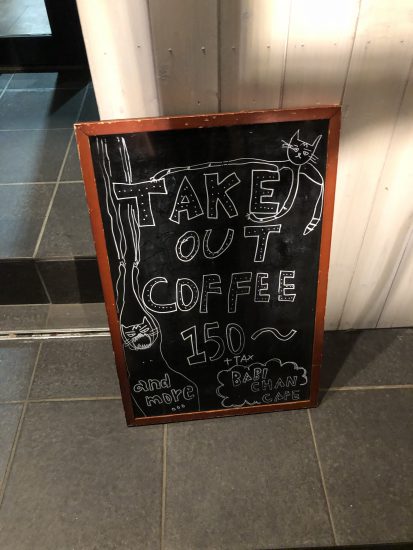 TAKE
OUT
COFFEE
150~
+TAX
and
more
...
BABI
CHAN
CAFE